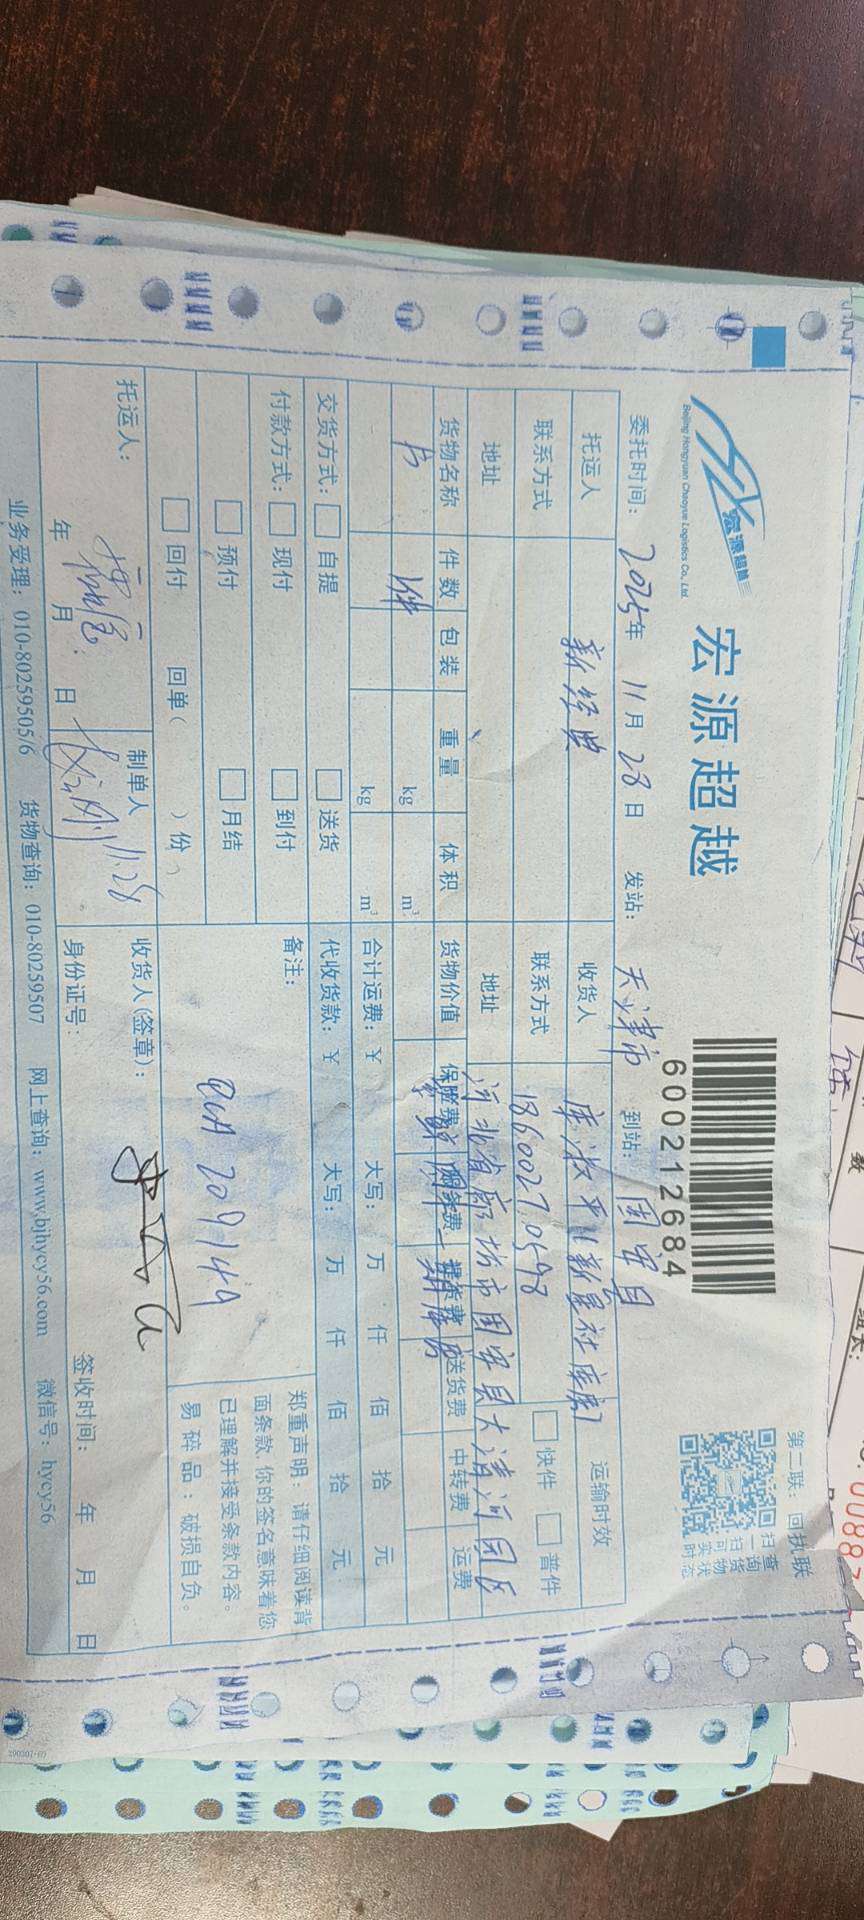 宏源超越
Beijing Hongyuan Chaoyue Logistics Co., Ltd
宏源超越
600212684
第二联：回执联
扫一扫
查询货物状态
可实时
委托时间：2025年11月28日 发站：天津市 到站：固安县
托运人 新经典 收货人 运输时效
联系方式 联系方式 18600270598 快件 普件
地址 地址 河北省廊坊市固安县大清河园区
货物名称 件数 包装 重量 体积 货物价值 保险费 服务费 提货费 送货费 中转费 运费
书 kg m³
kg m³ 合计运费：￥ 大写： 万 仟 佰 拾 元
交货方式： 自提 送货 代收货款：￥ 大写： 万 仟 佰 拾 元
付款方式： 现付 到付 备注：
预付 月结
回付 回单（ ）份
209149
郑重声明：请仔细阅读背
面条款，你的签名意味着您
已理解并接受条款内容。
易碎品：破损自负。
托运人： 制单人 11.28 收货人（签章）：
年 月 日 身份证号： 签收时间： 年 月 日
业务受理：010-80259505/6 货物查询：010-80259507 网上查询：www.bjhycy56.com 微信号：hycy56